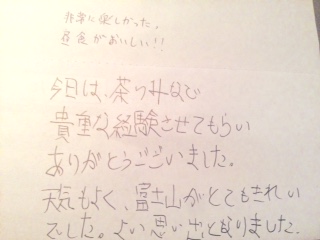 非常に楽しかった。
昼食がおいしい!!
今日は、茶つみなど
貴重な経験させてもらい
ありがとうございました。
天気もよく、富士山がとてもきれい
でした。よい思い出となりました。